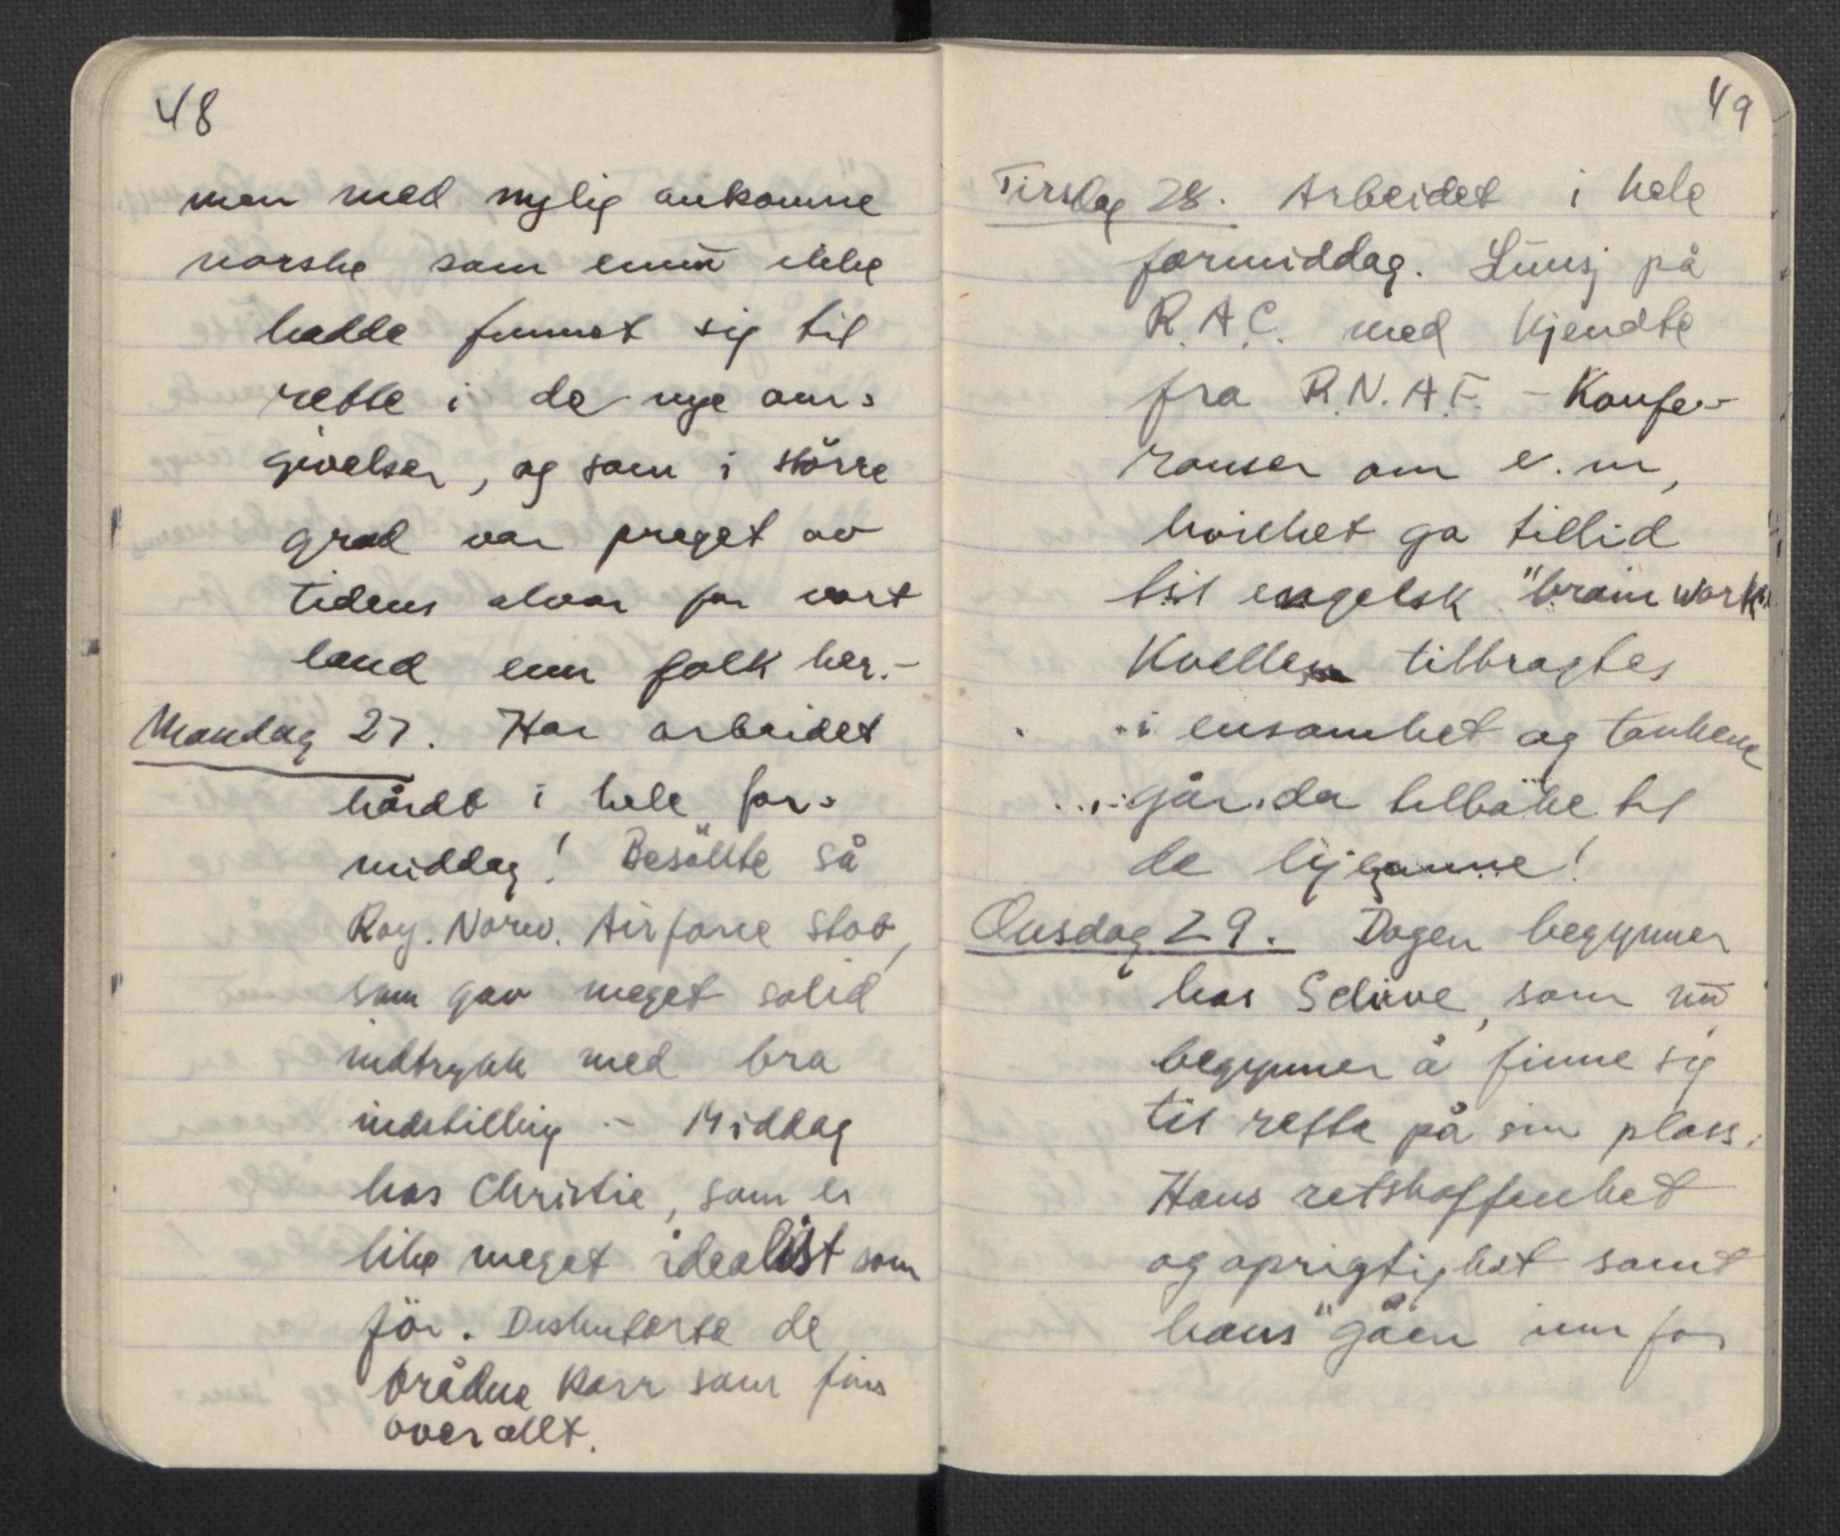 48
men med nylig ankomne
norske som ennū ikke
hadde funnet sig til
rette i de nye om-
givelser, og som i större
grad var preget av
tidens alvor for vort
land enn folk her.-
Mandag 27. Har arbeidet
hårdt i hele for-
middag! Besökte så
Roy. Norw. Airforce Stab,
som gav meget solid
indtrykk med bra
indstilling - Middag
hos Christie, som er
like meget idealist som
för. Diskuterte de
brådne karr som fins
over allt.
49
Tirsdag 28. Arbeidet i hele
formiddag. Lünsj på
R.A.C. med kjendte
fra R.N.A.F. - Konfe-
ranser om e.m,
hvilket ga tillid
til engelsk "brain work".
Kvellen tilbragtes
i ensomhet og tankene
går da tilbake til
de hjemme!
Onsdag 29. Dagen begynner
hos Schive, som nū
begynner å finne sig
til rette på sin plass.
Hans retskaffenhet
og oprigtighet samt
hans "gåen inn for